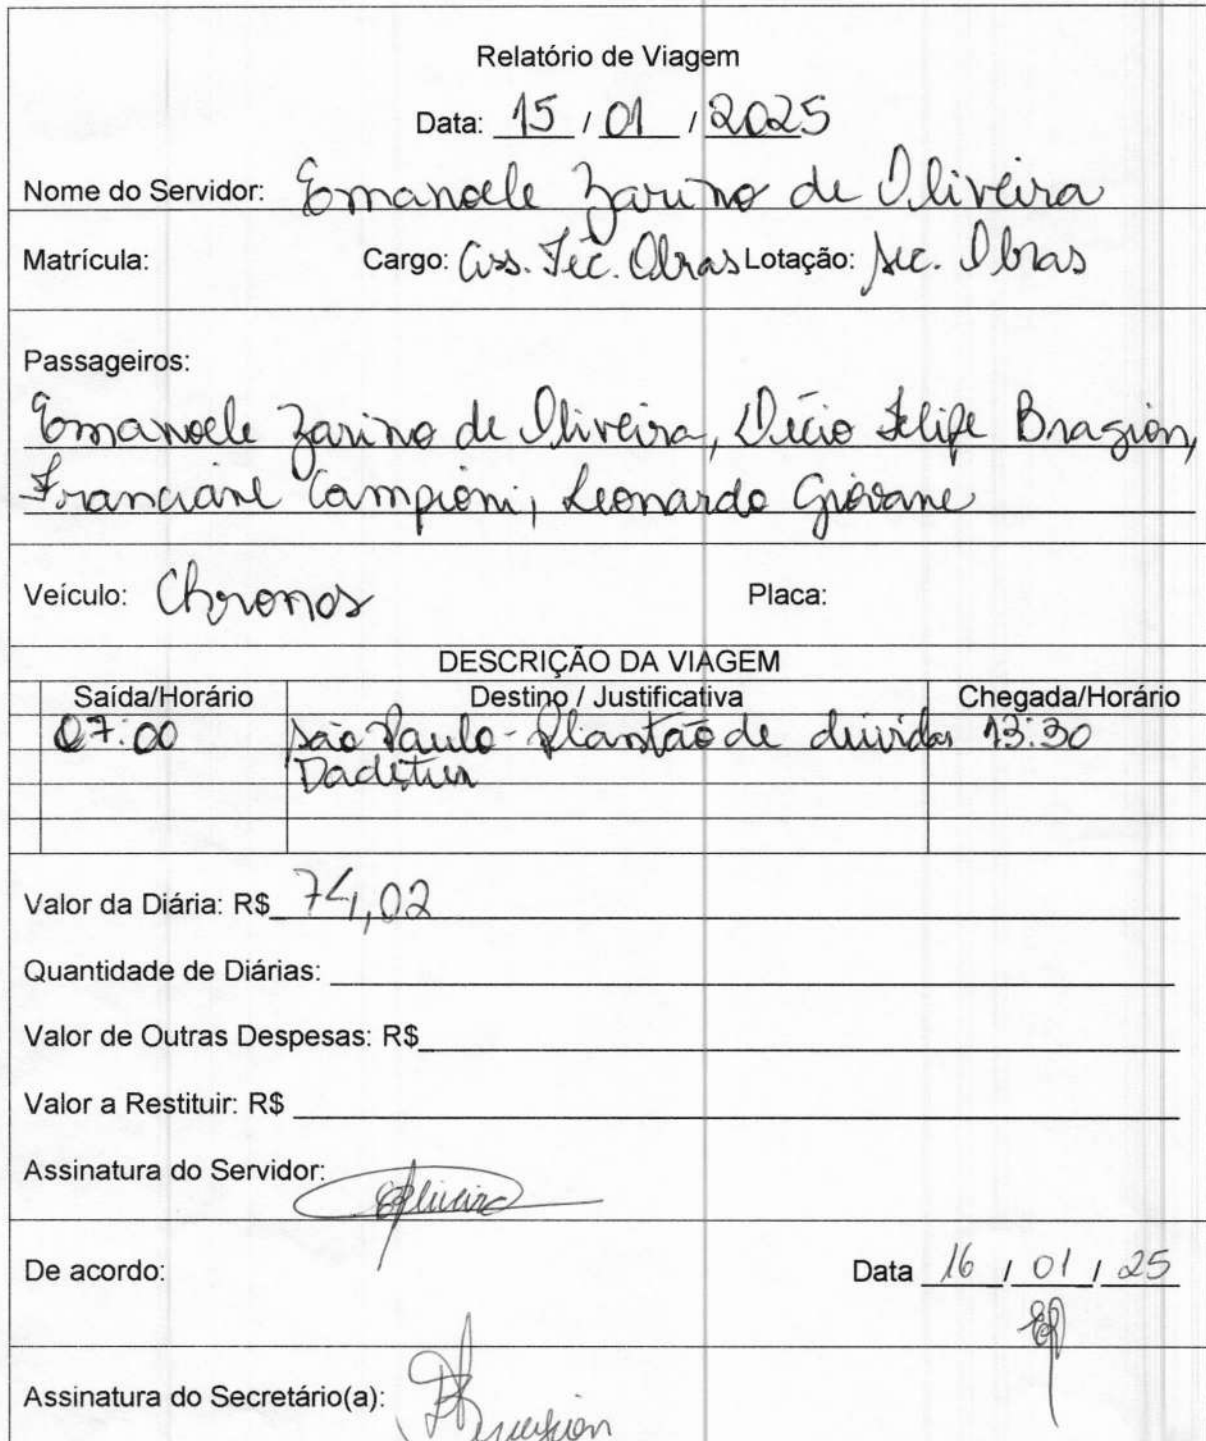 Relatório de Viagem
Data: 15 / 01 / 2025
Nome do Servidor: Emanoele Zarino de Oliveira
Matrícula: Cargo: Ass. Téc. Obras Lotação: Sec. Obras
Passageiros:
Emanoele Zarino de Oliveira, Décio Felipe Bragion,
Franciane Campioni, Leonardo Giovane
Veículo: Chronos Placa:
DESCRIÇÃO DA VIAGEM
Saída/Horário Destino / Justificativa Chegada/Horário
07:00 São Paulo - Plantão de dúvidas 13:30
Dadetur
Valor da Diária: R$ 74,02
Quantidade de Diárias:
Valor de Outras Despesas: R$
Valor a Restituir: R$
Assinatura do Servidor: EOliveira
De acordo: Data 16 / 01 / 25
Assinatura do Secretário(a):